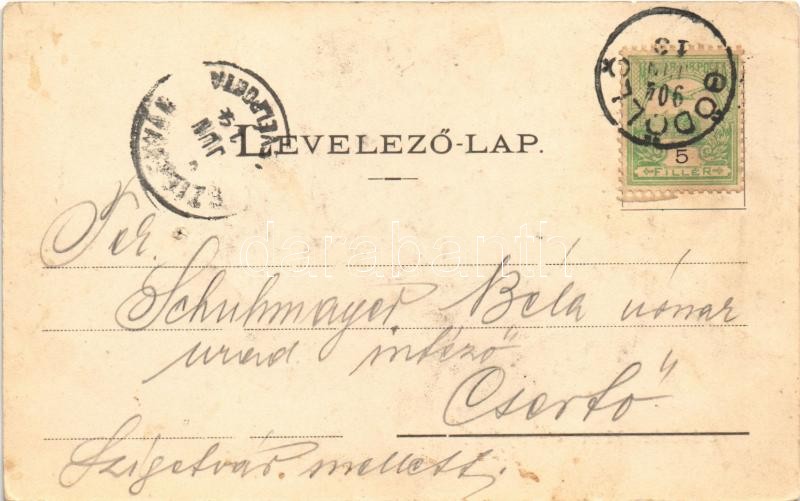 GÖDÖLLŐ
904 JUN 13
MAGY. KIR. POSTA
5
FILLÉR
LEVÉLPOSTA
JUN
LEVELEZŐ-LAP.
darabanth
Schuhmayer Béla
urad. intéző
Csertő
Szigetvár mellett.